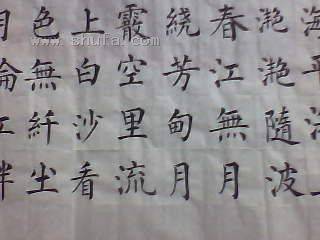 海平海上
滟滟隨波
春江無月
繞芳甸月
霰空里流
上白沙看
色無纤尘
月輪江畔
www.shufa.com